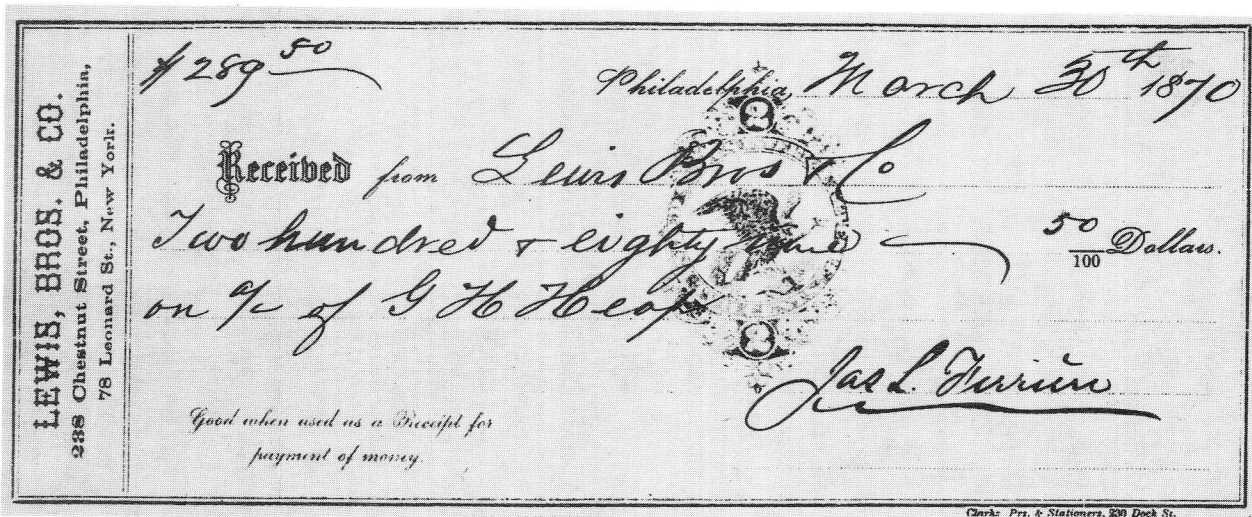 LEWIS, BROS. & CO.
238 Chestnut Street, Philadelphia,
78 Leonard St., New York.
$289 50
Philadelphia, March 30th 1870
2
Received from Lewis Bros & Co
Two hundred & eighty nine 50/100 Dollars.
on a/c of G H Heap
2
Jas L. Ferriere
Good when used as a Receipt for
payment of money.
Clarks Prs. & Stationers, 230 Dock St.